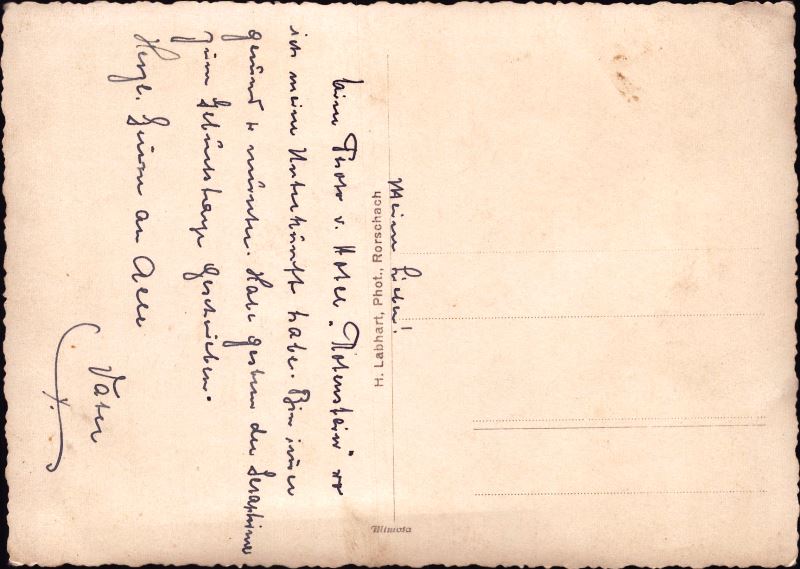 Meine Lieben!
beim Photo v. Hotel „Rotenstein" wo
ich meine Unterkunft habe. Bin immer
gesund & munter. Habe gestern der Seraphine
zum Geburtstage geschrieben.
Herzl. Grüsse an Alle
Vater
H. Labhart, Phot., Rorschach
Mimosa